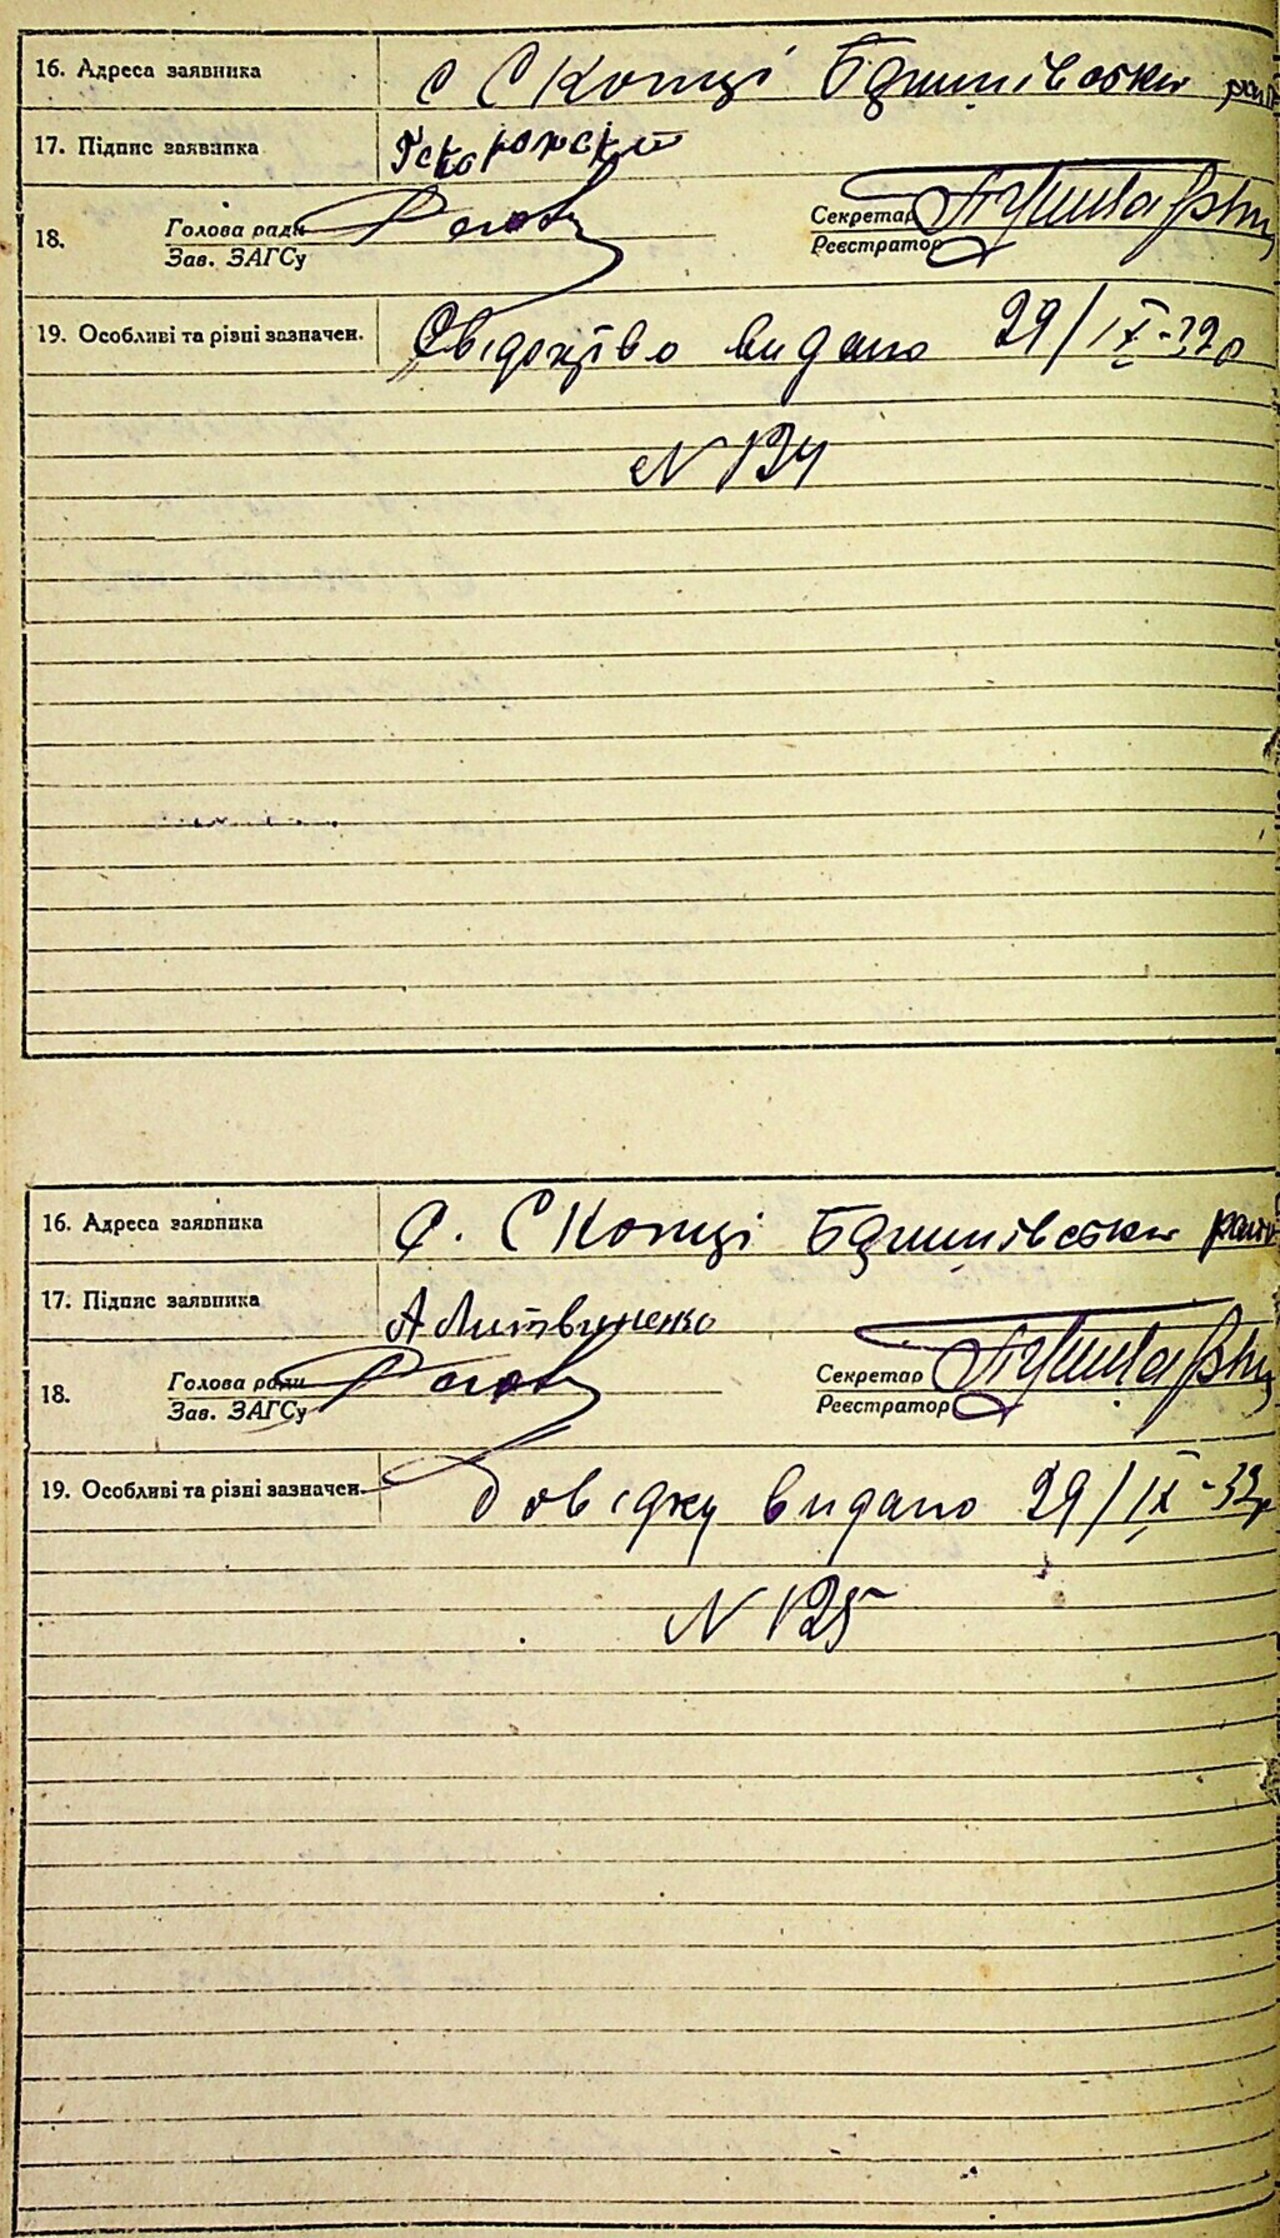 16. Адреса заявника с Сконці Бришівськ
17. Підпис заявника
18. Голова ради Секретар
Зав. ЗАГСу Реєстратор
19. Особливі та різні зазначен. Свідоцтво видано 29/IX-32р
N 124
16. Адреса заявника с. Сконці
17. Підпис заявника А Литвиненко
18. Голова ради Секретар
Зав. ЗАГСу Реєстратор
19. Особливі та різні зазначен. Довідку видано 29/IX-32р
N 125